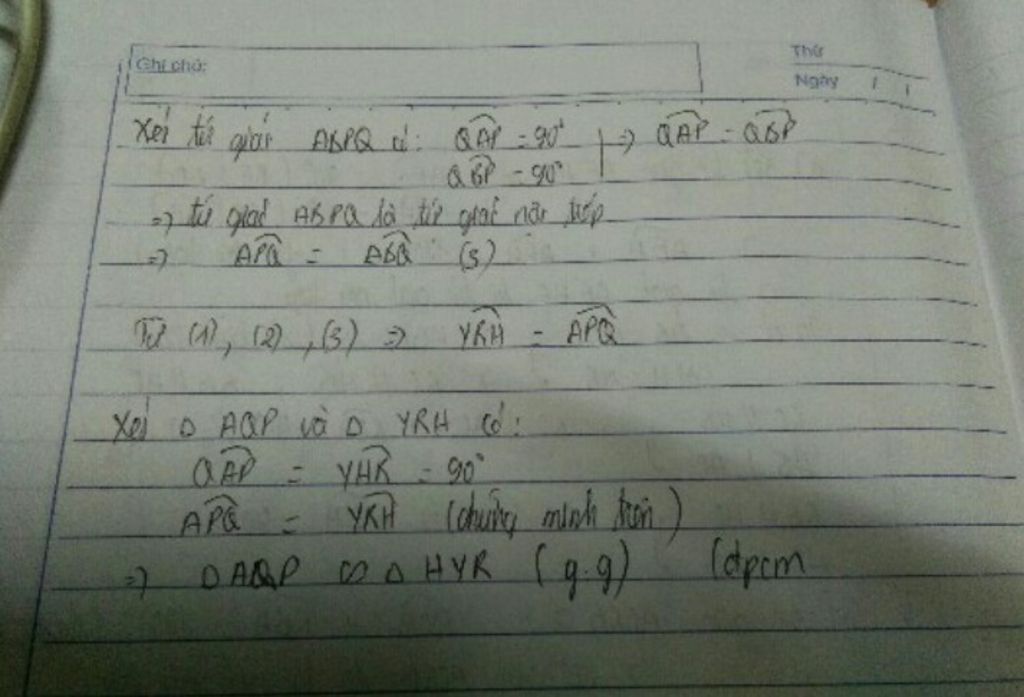 Ghi chú:
Thứ
Ngày / /
Xét tứ giác ABPQ có: QAP = 90° | => QAP = QBP
QBP = 90°
=> tứ giác ABPQ là tứ giác nội tiếp
=> APQ = ABQ (3)
Từ (1), (2), (3) => YRH = APQ
Xét Δ AQP và Δ YRH có:
QAP = YHR = 90°
APQ = YRH (chứng minh trên)
=> Δ AQP ∽ Δ HYR (g.g) (đpcm